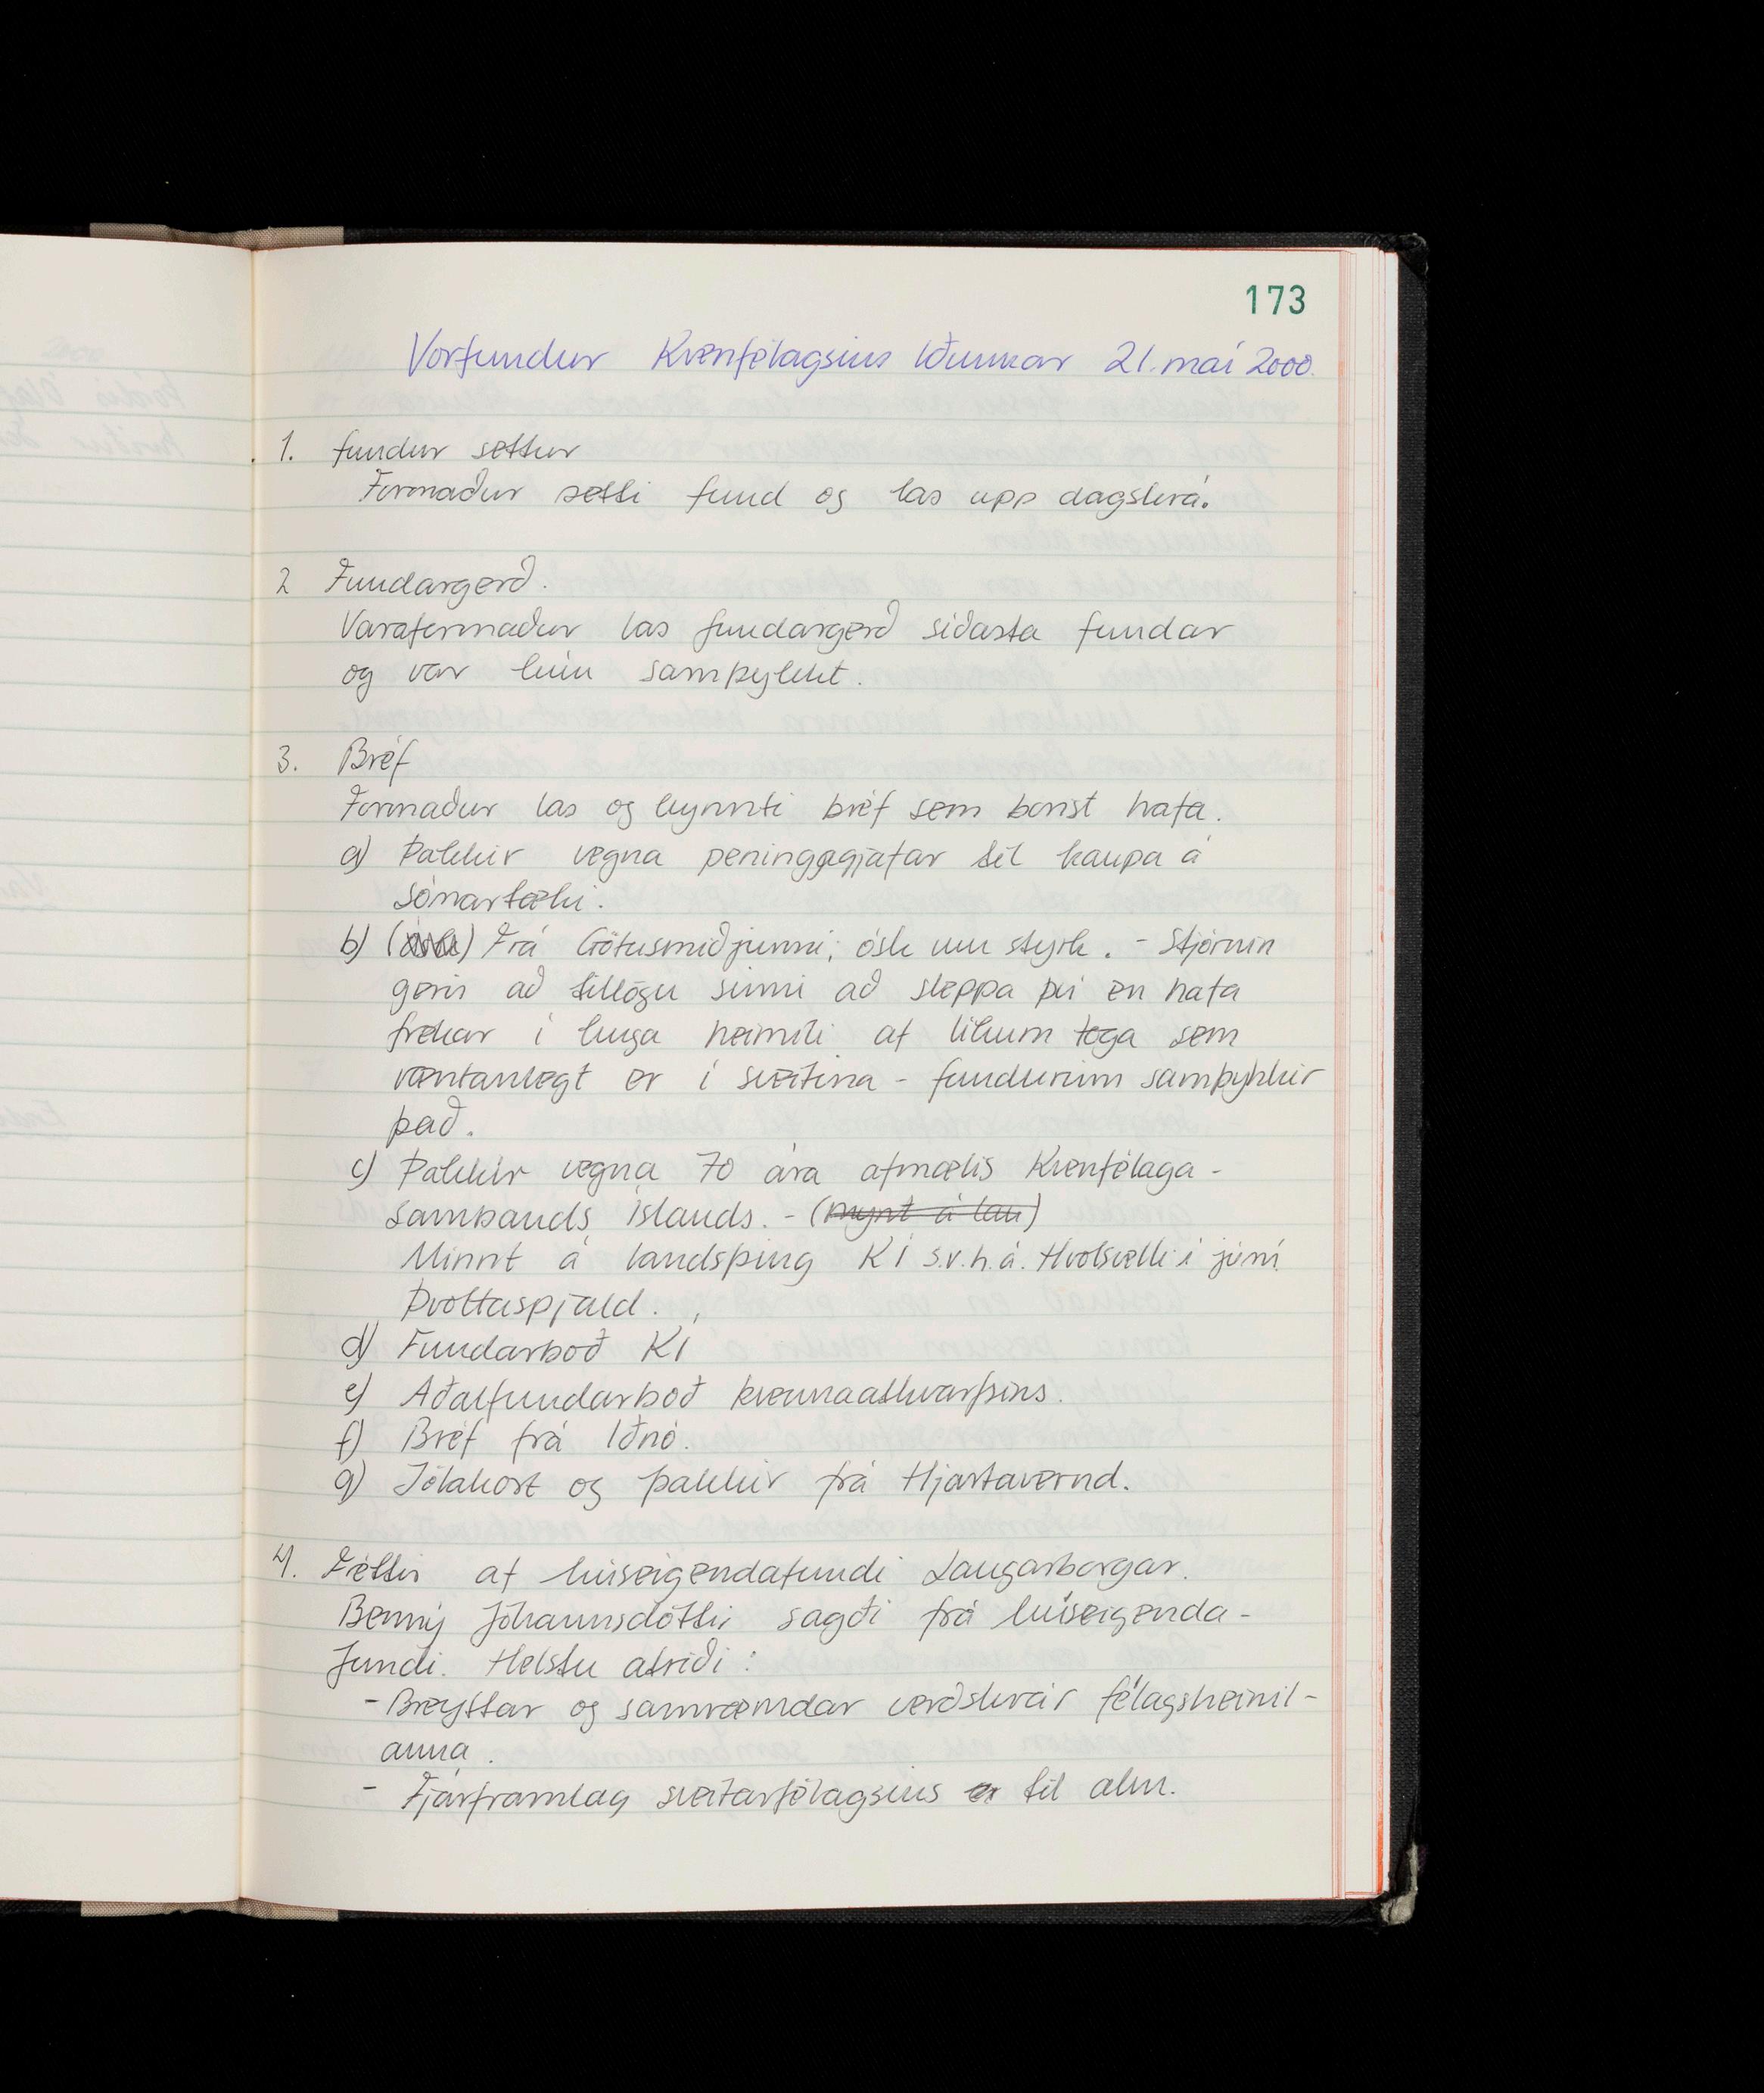 173
Vorfundur Kvenfélagsins Iðunnar 21. maí 2000.
1. fundur settur
Formaður setti fund og las upp dagskrá.
2 Fundargerð.
Varaformaður las fundargerð síðasta fundar
og var hún samþykkt.
3. Bréf
Formaður las og kynnti bréf sem borist hafa.
a) Þakkir vegna peningagjafar til kaupa á
sónartæki.
b) (ósk) Frá Götusmiðjunni; ósk um styrk. - Stjórnin
gerir að tillögu sinni að sleppa því en hafa
frekar í huga heimili af líkum toga sem
væntanlegt er í sveitina - fundurinn samþykkir
það.
c) Þakkir vegna 70 ára afmælis Kvenfélaga-
sambands Íslands. - (mynt á lan)
Minnt á landsþing KÍ s.v.h.á. Hvolsvelli í júní
Þvottaspjald.
d) Fundarboð KÍ
e) Aðalfundarboð kvennaathvarfsins.
f) Bréf frá Iðnó.
g) Jólakort og þakkir frá Hjartavernd.
4. Fréttir af húseigendafundi Laugarborgar.
Benný Jóhannsdóttir sagði frá húseigenda-
fundi. Helstu atriði:
- Breyttar og samræmdar verðskrár félagsheimil-
anna.
- Fjárframlag sveitarfélagsins er til alm.